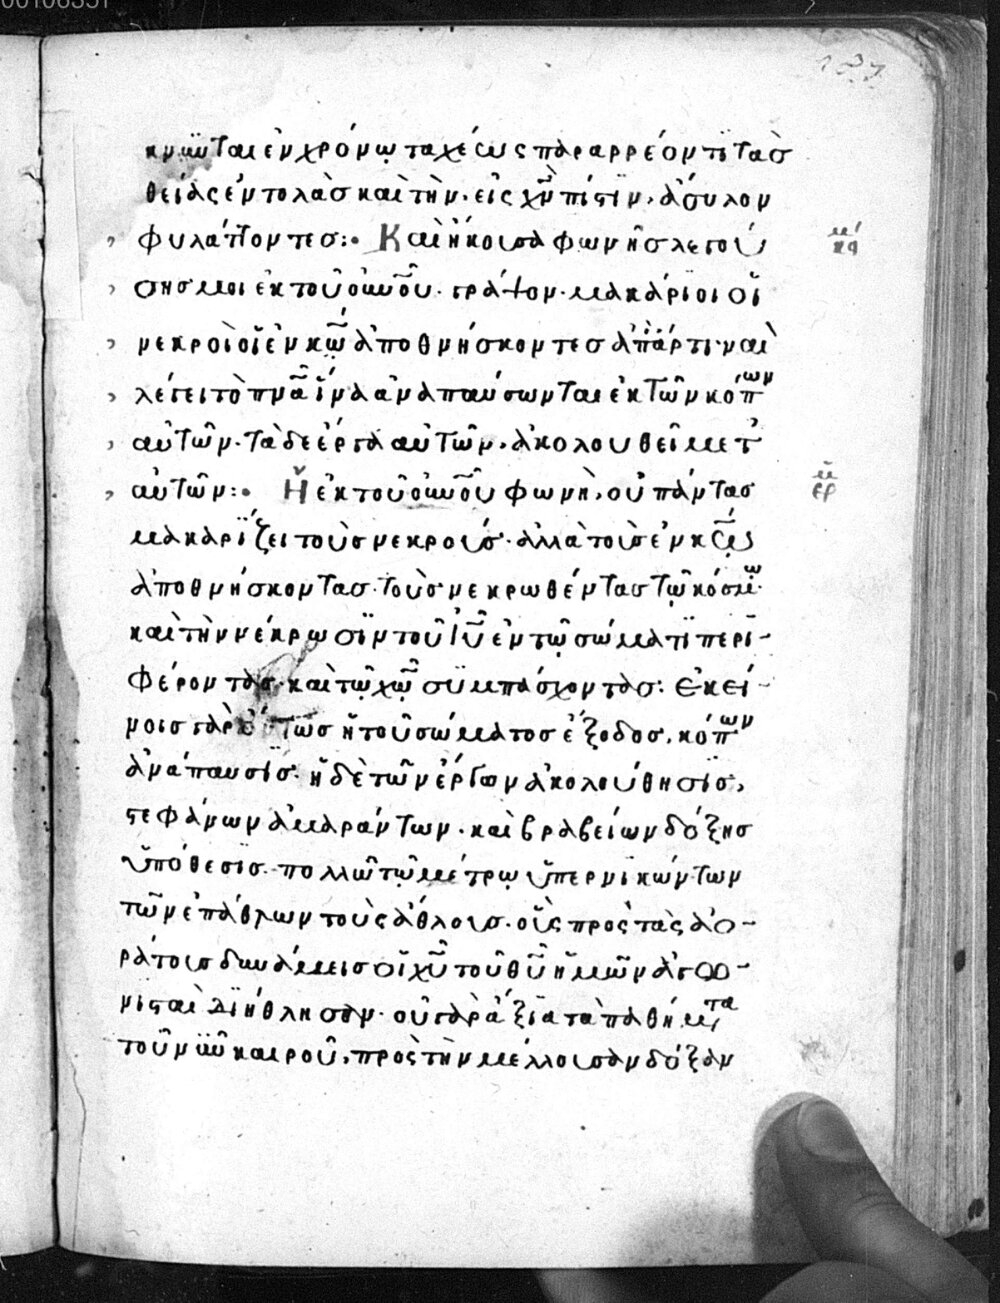 00106351
137
κνῶνται ἐν χρόνῳ ταχέως παραρρέοντι τὰσ
θείας ἐντολὰσ καὶ τὴν εἰς χν̅ πίστιν, ἄσυλον
φυλάττοντεσ:· Καὶ ἤκουσα φωνῆσ λεγού
σησ μοι ἐκ τοῦ οὐνοῦ· γράψον· μακάριοι οἱ
νεκροὶ οἱ ἐν κω̅ ἀποθνήσκοντεσ ἀπάρτι· ναὶ
λέγει τὸ πνα̅ ἵνα ἀναπαύσωνται ἐκ τῶν κόπων
αὐτῶν· τὰ δὲ ἔργα αὐτῶν, ἀκολουθεῖ μετ
αὐτῶν:· Ἡ ἐκ τοῦ οὐνοῦ φωνὴ, οὐ πάντασ
μακαρίζει τοὺσ νεκρούσ· ἀλλὰ τοὺσ ἐν κω̅
ἀποθνήσκοντασ· τοὺσ νεκρωθέντασ τῷ κόσμω·
καὶ τὴν νέκρωσιν τοῦ ιυ̅ ἐν τῷ σώματι περι-
φέροντασ· καὶ τῷ χω̅ συμπάσχοντασ· ἐκεί-
νοισ γὰρ ὄντωσ ἡ τοῦ σώματοσ ἔξοδοσ, κόπων
ἀνάπαυσισ· ἡ δὲ τῶν ἔργων ἀκολούθησισ,
στεφάνων ἀμαράντων· καὶ βραβείων δόξησ
ὑπόθεσισ· πολλῶ τῷ μέτρῳ ὑπερνικώντων
τῶν ἐπάθλων τοὺς ἄθλουσ· οὓς πρὸς τὰς ἀο-
ράτουσ δυνάμεισ οἱ χυ̅ τοῦ θυ̅ ἡμῶν ἀγω-
νισταὶ διήθλησαν· οὐ γὰρ ἄξια τὰ παθήματα
τοῦ νῦν καιροῦ, πρὸς τὴν μέλλουσαν δόξαν